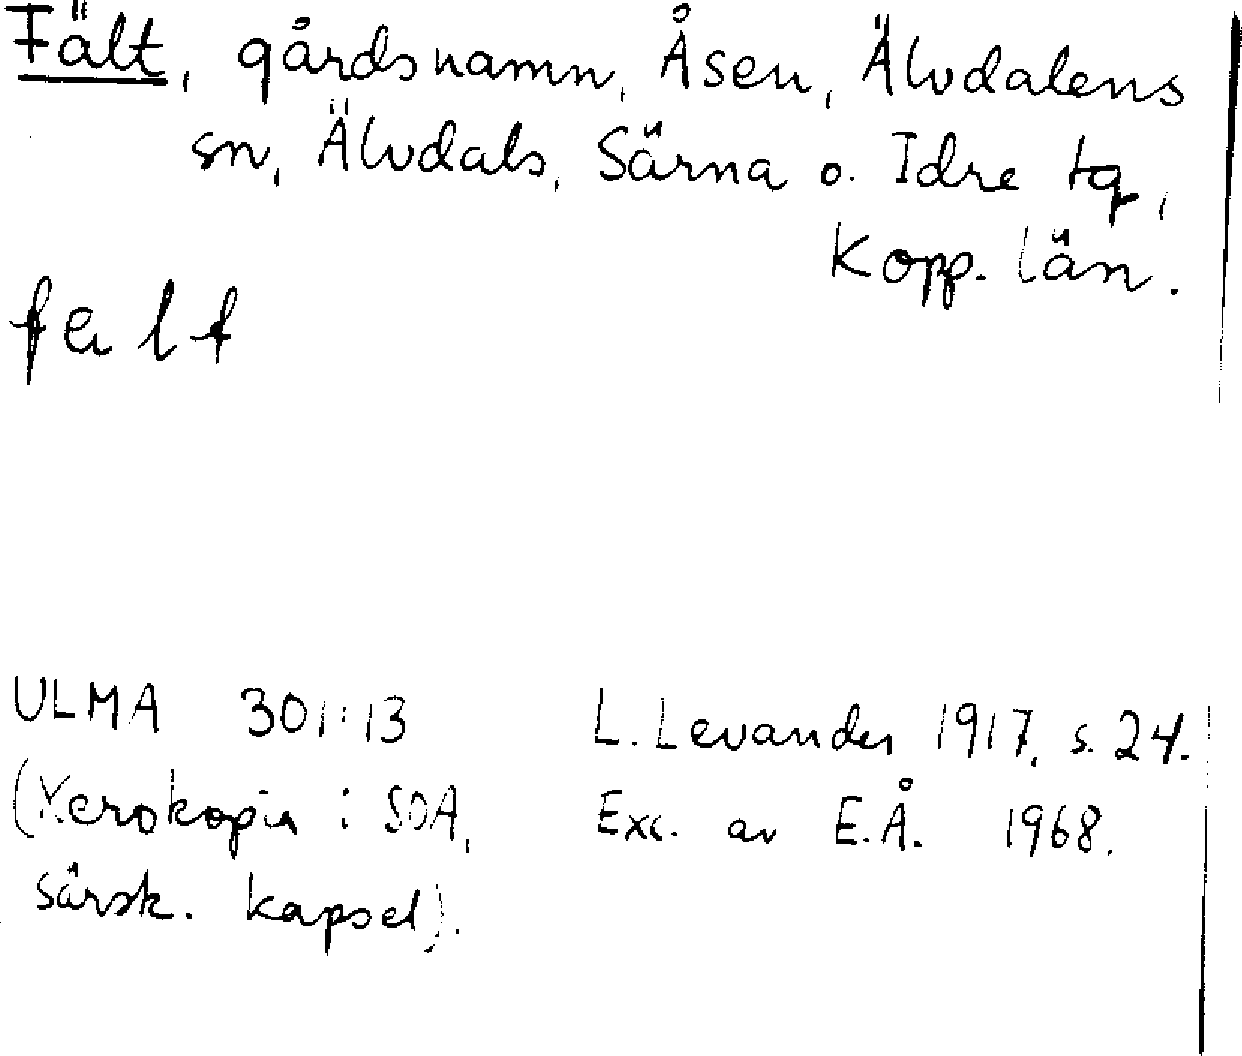 Fält, gårdsnamn, Åsen, Älvdalens
sn, Älvdals, Särna o. Idre tg,
Kopp. län.
ULMA 301:13
(Xerokopia i SOA,
särsk. kapsel).
L. Levander 1917, s. 24.
Exc. av E.Å. 1968.